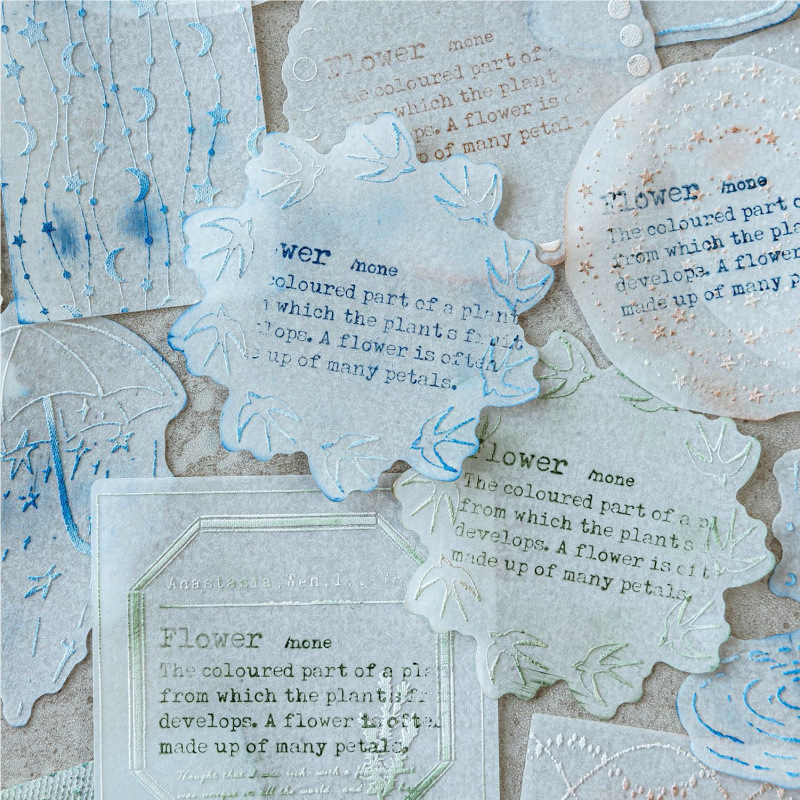 Flower /none
The coloured part of a
which the plant
ps. A flower is
p of many petals.
Flower /none
The coloured part o
from which the pla
develops. A flower
made up of many p
wer /none
coloured part of a plant
which the plant s fruit
lops. A flower is often
e up of many petals.
Flower /none
The coloured part of a pl
from which the plant s
develops. A flower is oft
made up of many petals.
Anastasia.Wen.l
Flower /none
The coloured part of a pla
from which the plant s fr
develops. A flower is often
made up of many petals.
Thought that I was rich, with a flower
was unique in all the world, and